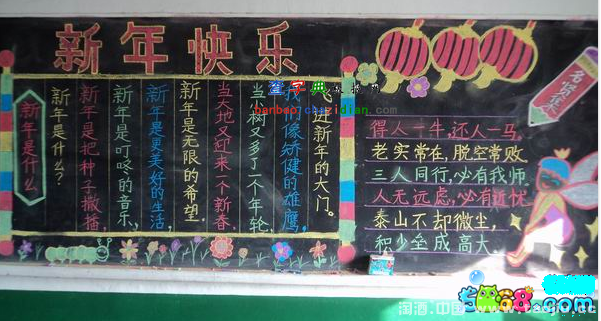 新年快乐
新年是什么
新年是什么?
新年是把种子撒播,
新年是叮咚的音乐,
新年是更美好的生活,
新年是无限的希望.
当大地又迎来一个新春,
当小树又多了一个年轮,
我们像矫健的雄鹰,
飞进新年的大门。
得人一牛,还人一马,
老实常在,脱空常败
三人同行,必有我师
人无远虑,必有近忧
泰山不却微尘,
积少垒成高大
查字典
banbao.chazidian.com
68.com